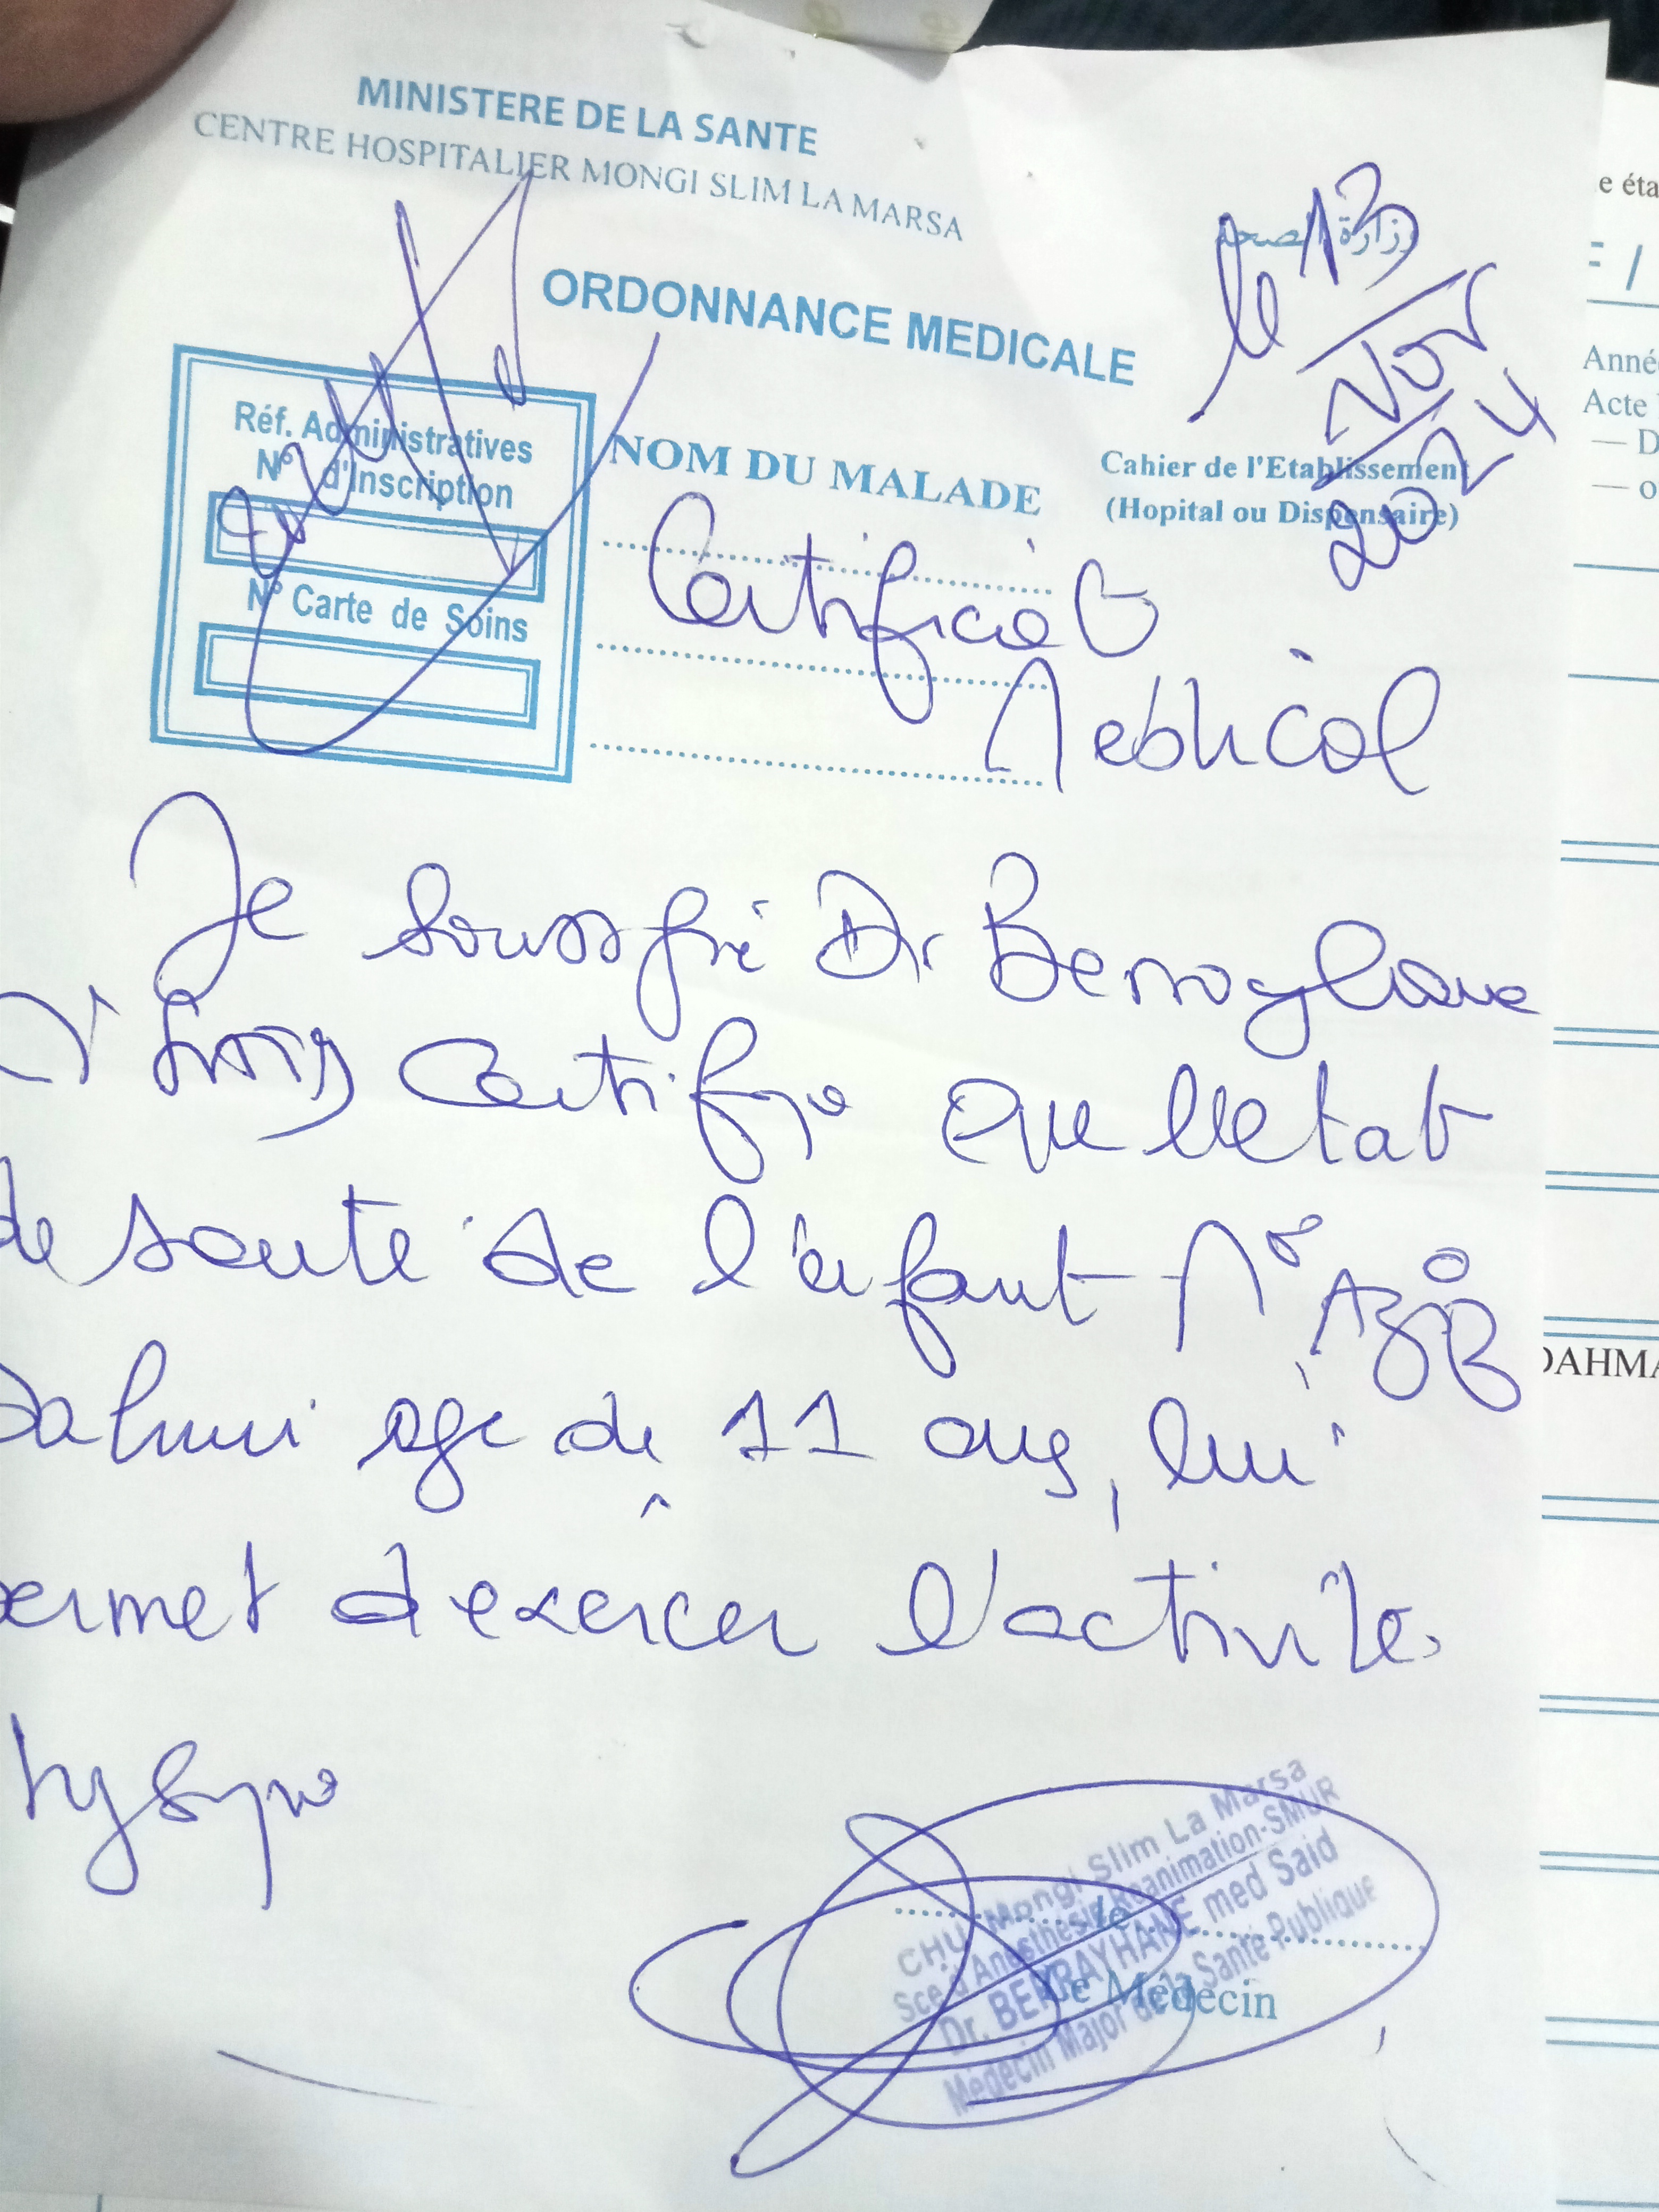 MINISTERE DE LA SANTE
CENTRE HOSPITALIER MONGI SLIM LA MARSA
وزارة الصحة
le 13
Nov
2024
ORDONNANCE MEDICALE
Réf. Administratives
N° d'Inscription
N° Carte de Soins
NOM DU MALADE
Cahier de l'Etablissement
(Hopital ou Dispensaire)
Certificat
Medical
Je soussigné Dr Berrayhane
certifie que l'etat
de santé de l'enfant
Dahmi age de 11 ans, lui
permet d'exercer l'activite
CHU Mongi Slim La Marsa
Sce d'Anesthésie Réanimation-SMUR
Dr. BERRAYHANE med Said
Médecin Major de la Santé Publique
le
Le Médecin
e éta
Anné
Acte
— D
— o
DAHMA